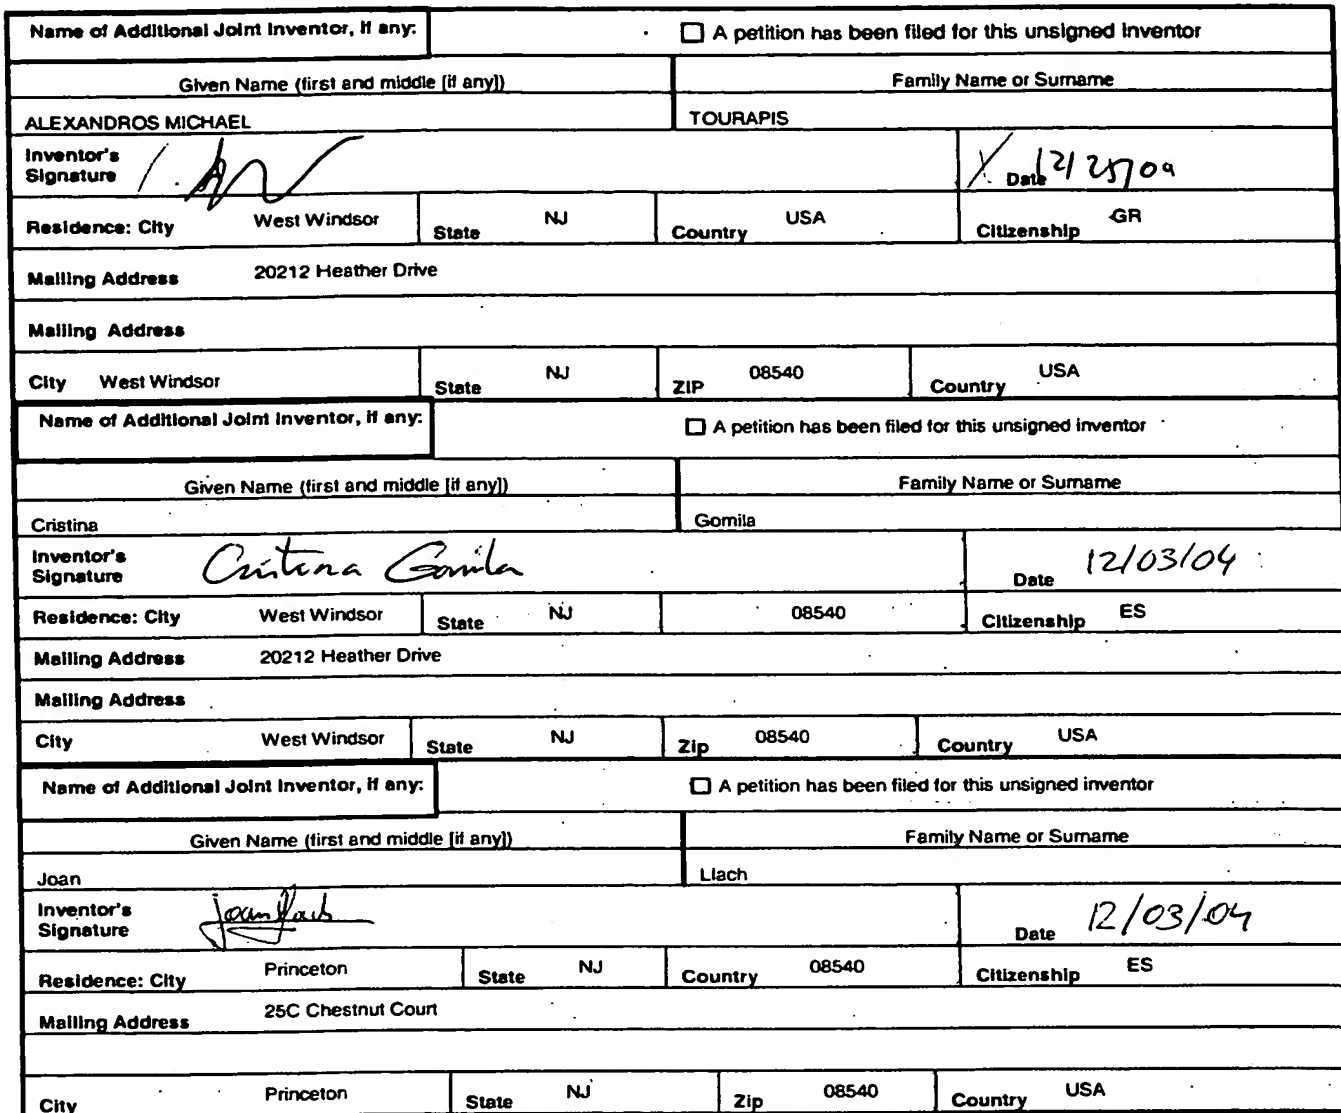 Name of Additional Joint Inventor, if any: ☐ A petition has been filed for this unsigned inventor
Given Name (first and middle [if any]) Family Name or Surname
ALEXANDROS MICHAEL TOURAPIS
Inventor's
Signature Date
Residence: City West Windsor State NJ Country USA Citizenship GR
Mailing Address 20212 Heather Drive
Mailing Address
City West Windsor State NJ ZIP 08540 Country USA
Name of Additional Joint Inventor, if any: ☐ A petition has been filed for this unsigned inventor
Given Name (first and middle [if any]) Family Name or Surname
Cristina Gomila
Inventor's
Signature Cristina Gomila Date 12/03/04
Residence: City West Windsor State NJ 08540 Citizenship ES
Mailing Address 20212 Heather Drive
Mailing Address
City West Windsor State NJ Zip 08540 Country USA
Name of Additional Joint Inventor, if any: ☐ A petition has been filed for this unsigned inventor
Given Name (first and middle [if any]) Family Name or Surname
Joan Llach
Inventor's
Signature Joan Llach Date 12/03/04
Residence: City Princeton State NJ Country 08540 Citizenship ES
Mailing Address 25C Chestnut Court
City Princeton State NJ Zip 08540 Country USA